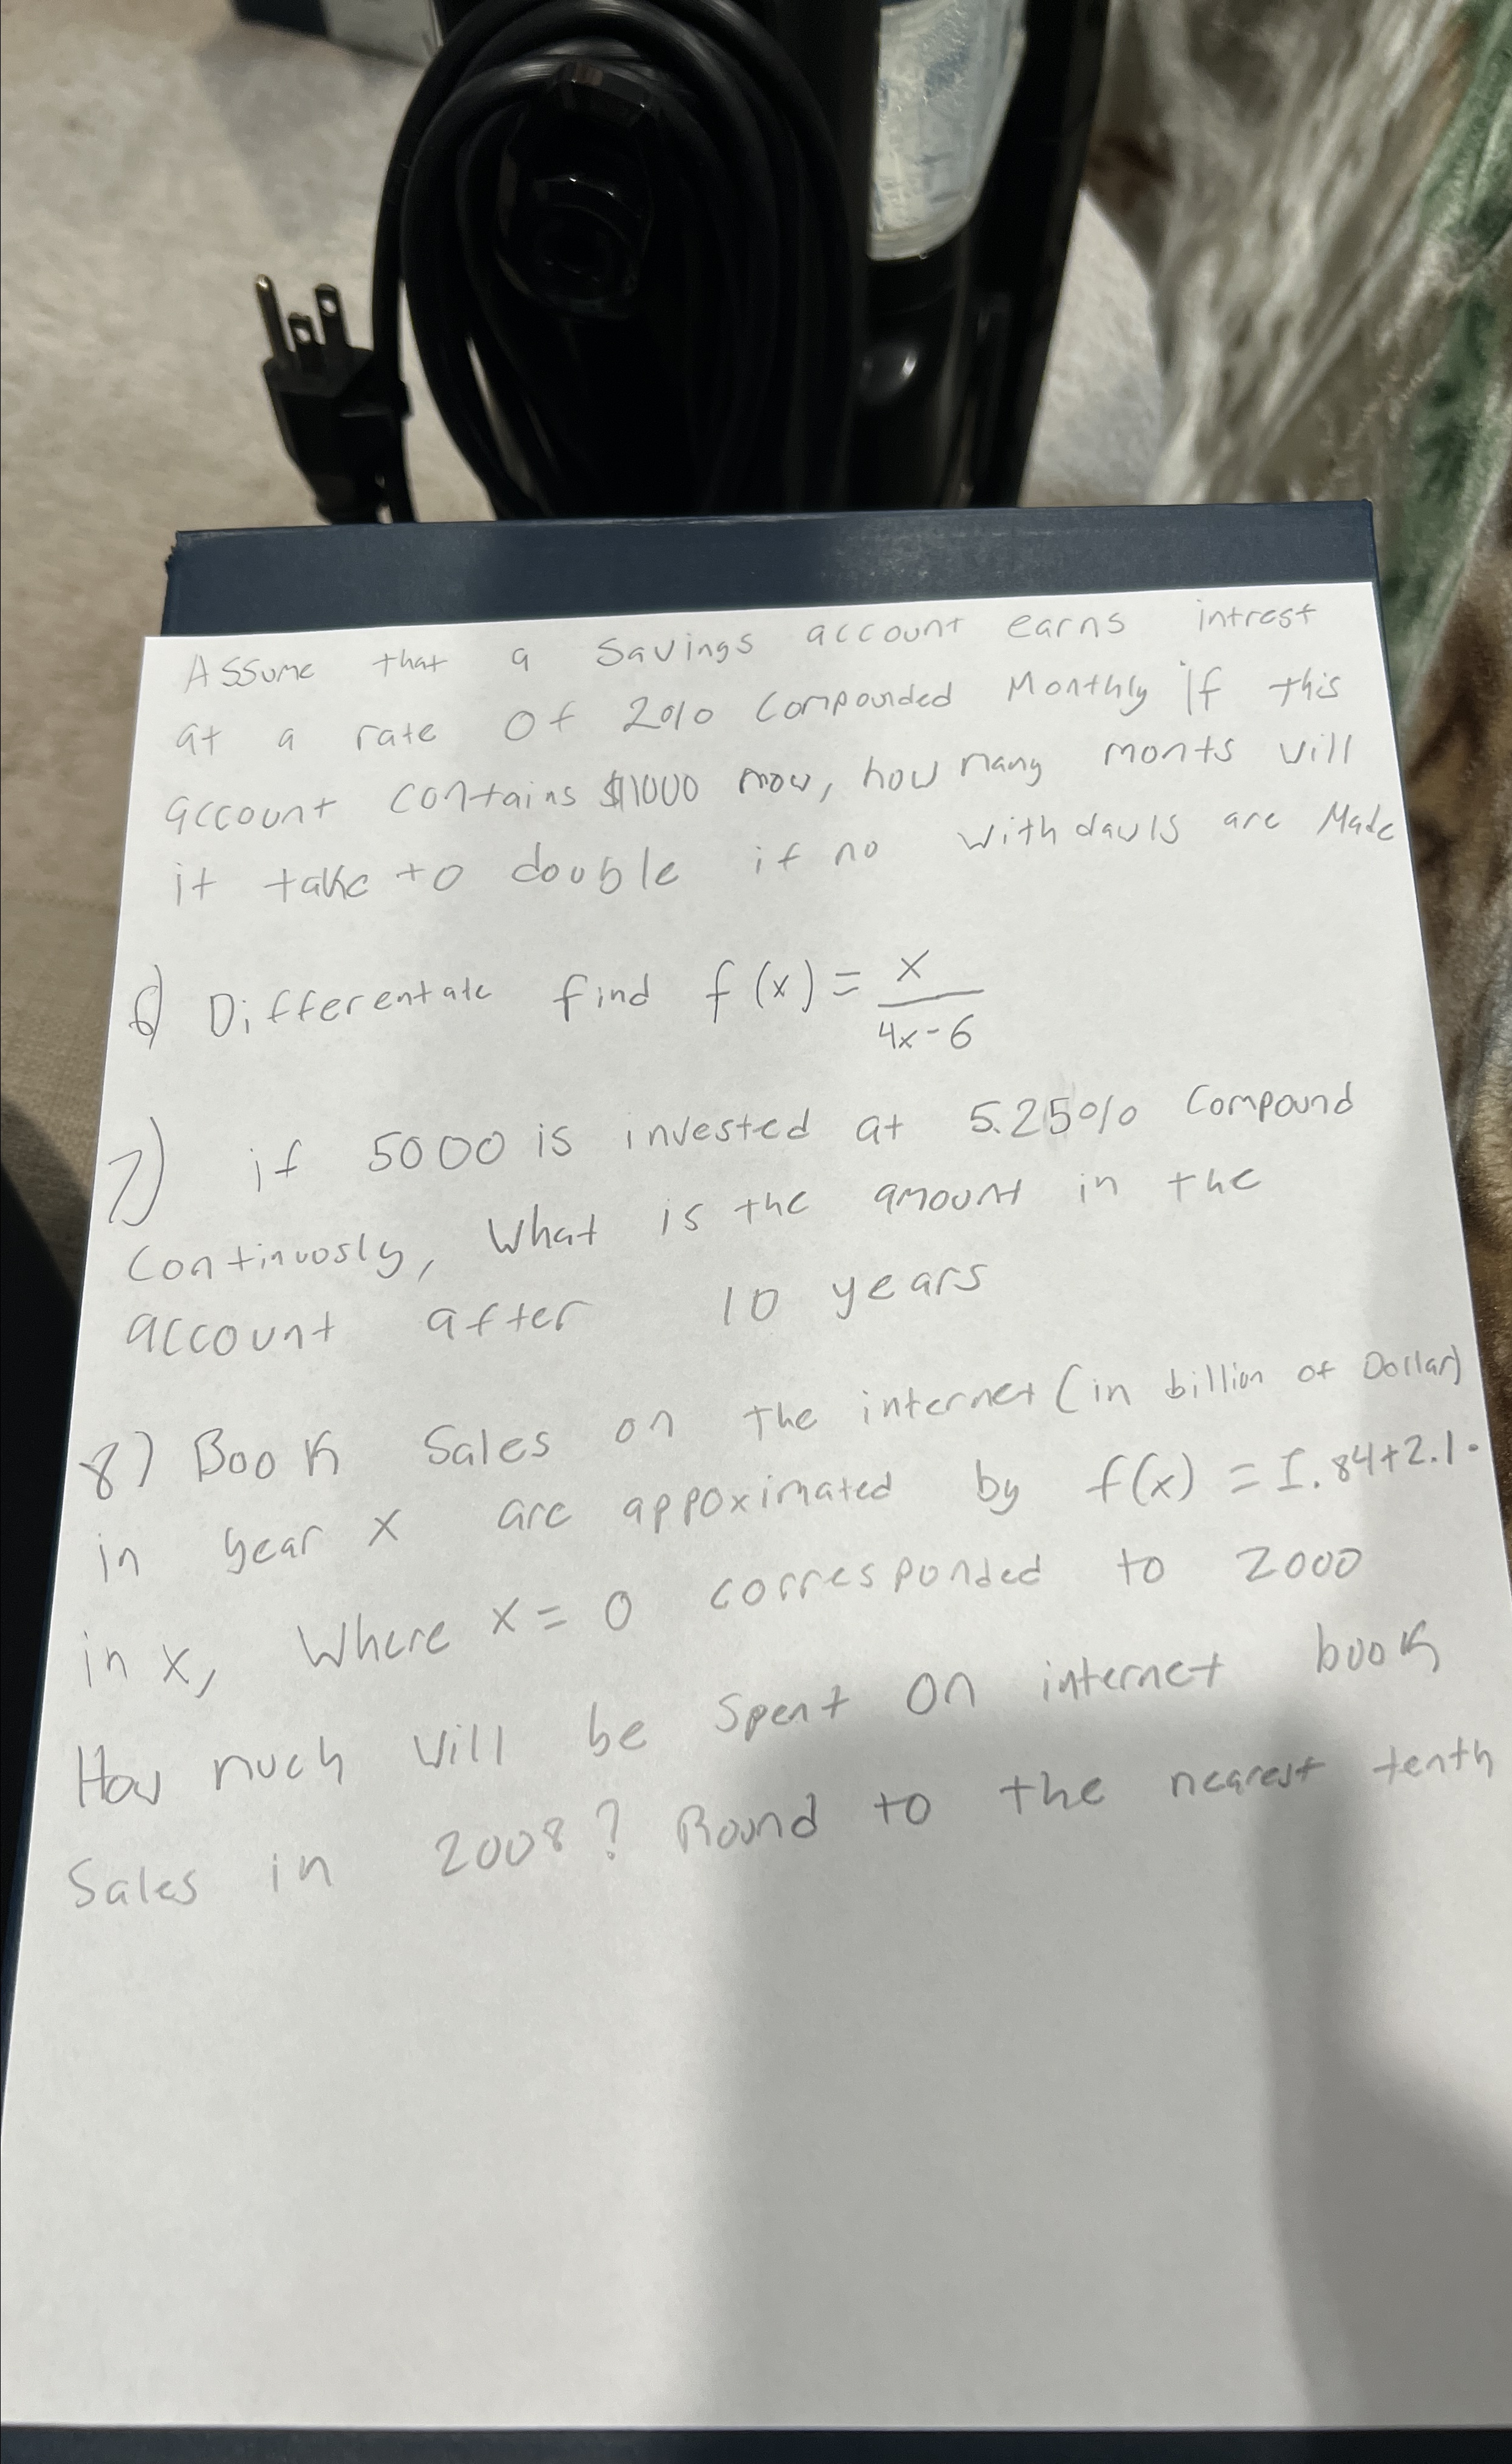 Assume that a Savings account earns intrest
at a rate of 2% Compounded Monthly If this
account contains $1000 now, how many monts will
it take to double if no withdauls are Made
6) Differentate find f(x) = x/(4x-6)
7) if 5000 is invested at 5.25% Compound
Continuosly, What is the amount in the
account after 10 years
8) Book Sales on the internet (in billion of Dollar)
in year x are appoximated by f(x) = 1.84+2.1·
in x, Where x = 0 corresponded to 2000
How much will be Spent on internet book
Sales in 2008? Round to the nearest tenth